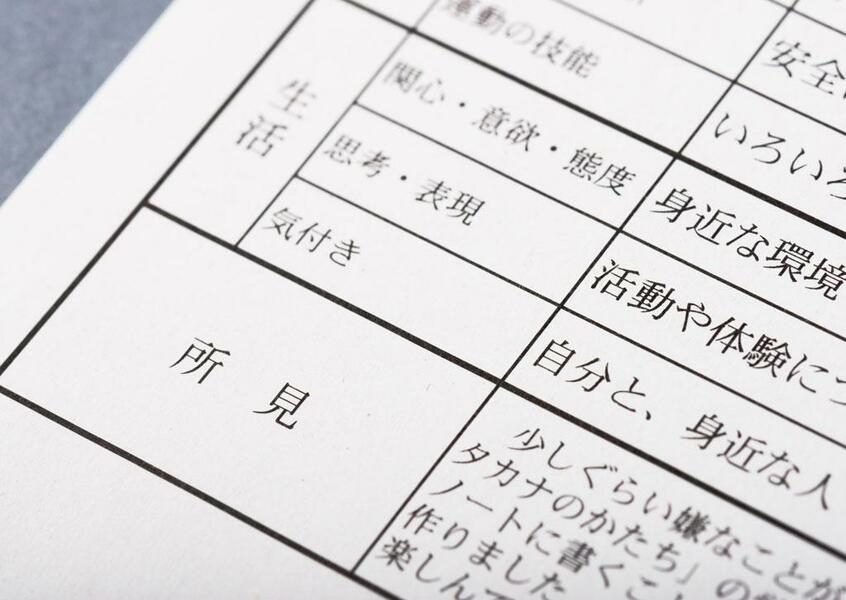 運動の技能
安全に
いろいろ
生活
関心・意欲・態度
身近な環境
思考・表現
活動や体験につ
気付き
自分と、身近な人
所見
少しぐらい嫌なことが
タカナのかたち」の
ノートに書くこと
作りました
楽しんで